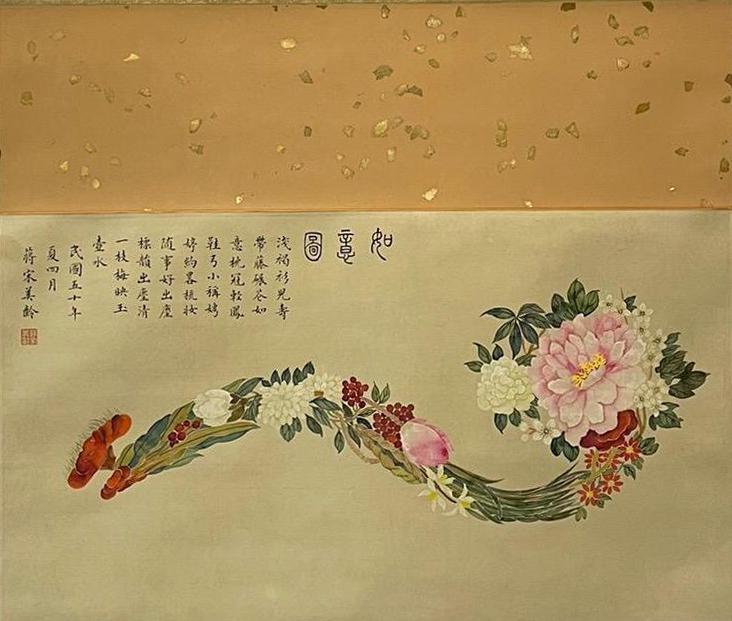 如意圖
淺褐衫兒壽
帶藤碾花如
意枕冠輕鳳
鞋弓小稱娉
婷約畧梳妝
随事好出塵
標韻出塵清
一枝梅映玉
壺氷
民國五十年
夏四月
蔣宋美齡